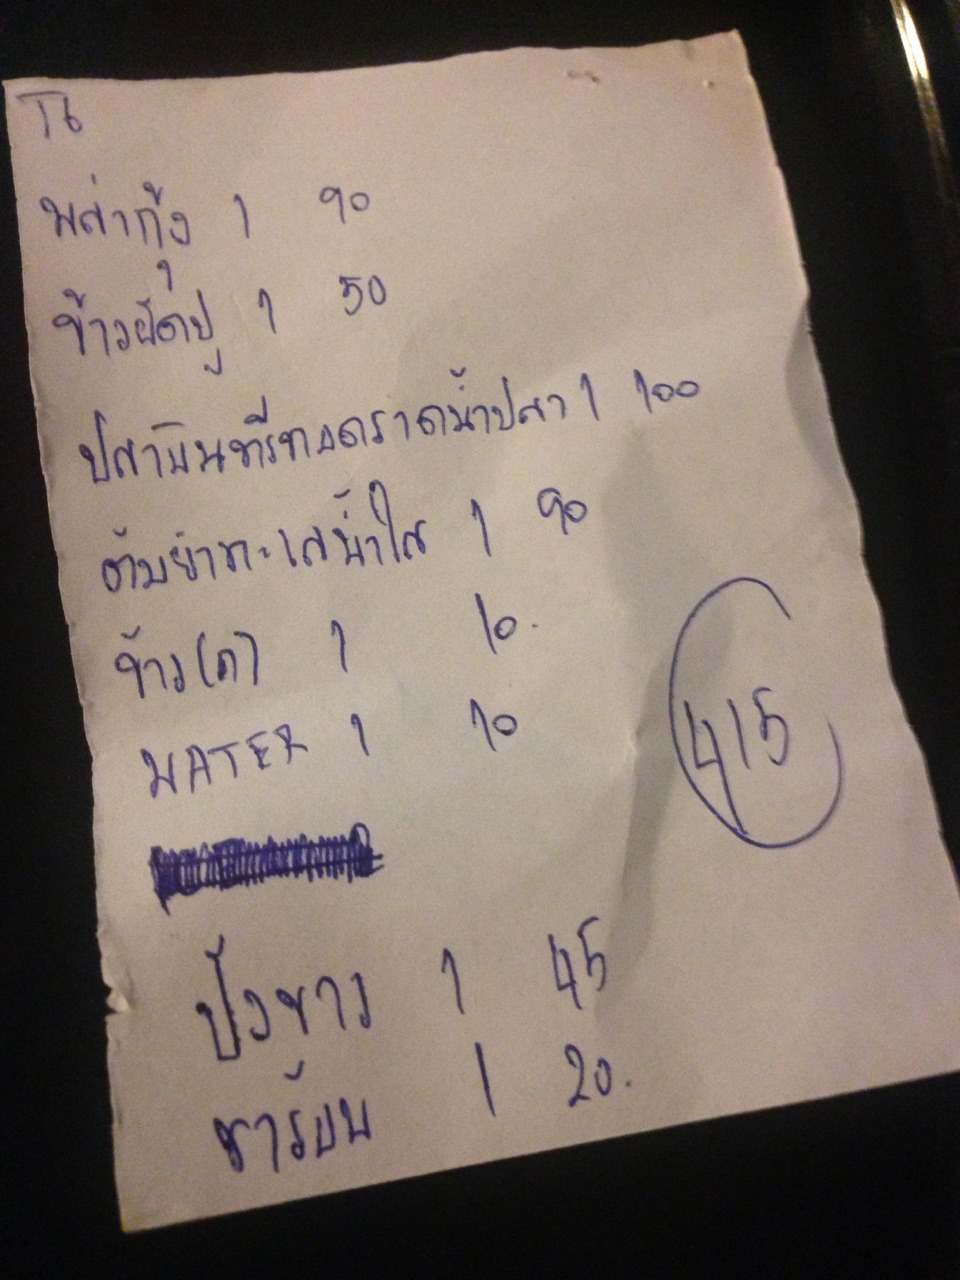 T6
พล่ากุ้ง 1 90
ข้าวผัดปู 1 50
ปลาอินทรีทอดราดน้ำปลา 1 100
ต้มยำทะเลน้ำใส 1 90
ข้าว(ถ) 1 10.
WATER 1 10
415
ปังขาว 1 45
ชาร้อน 1 20.